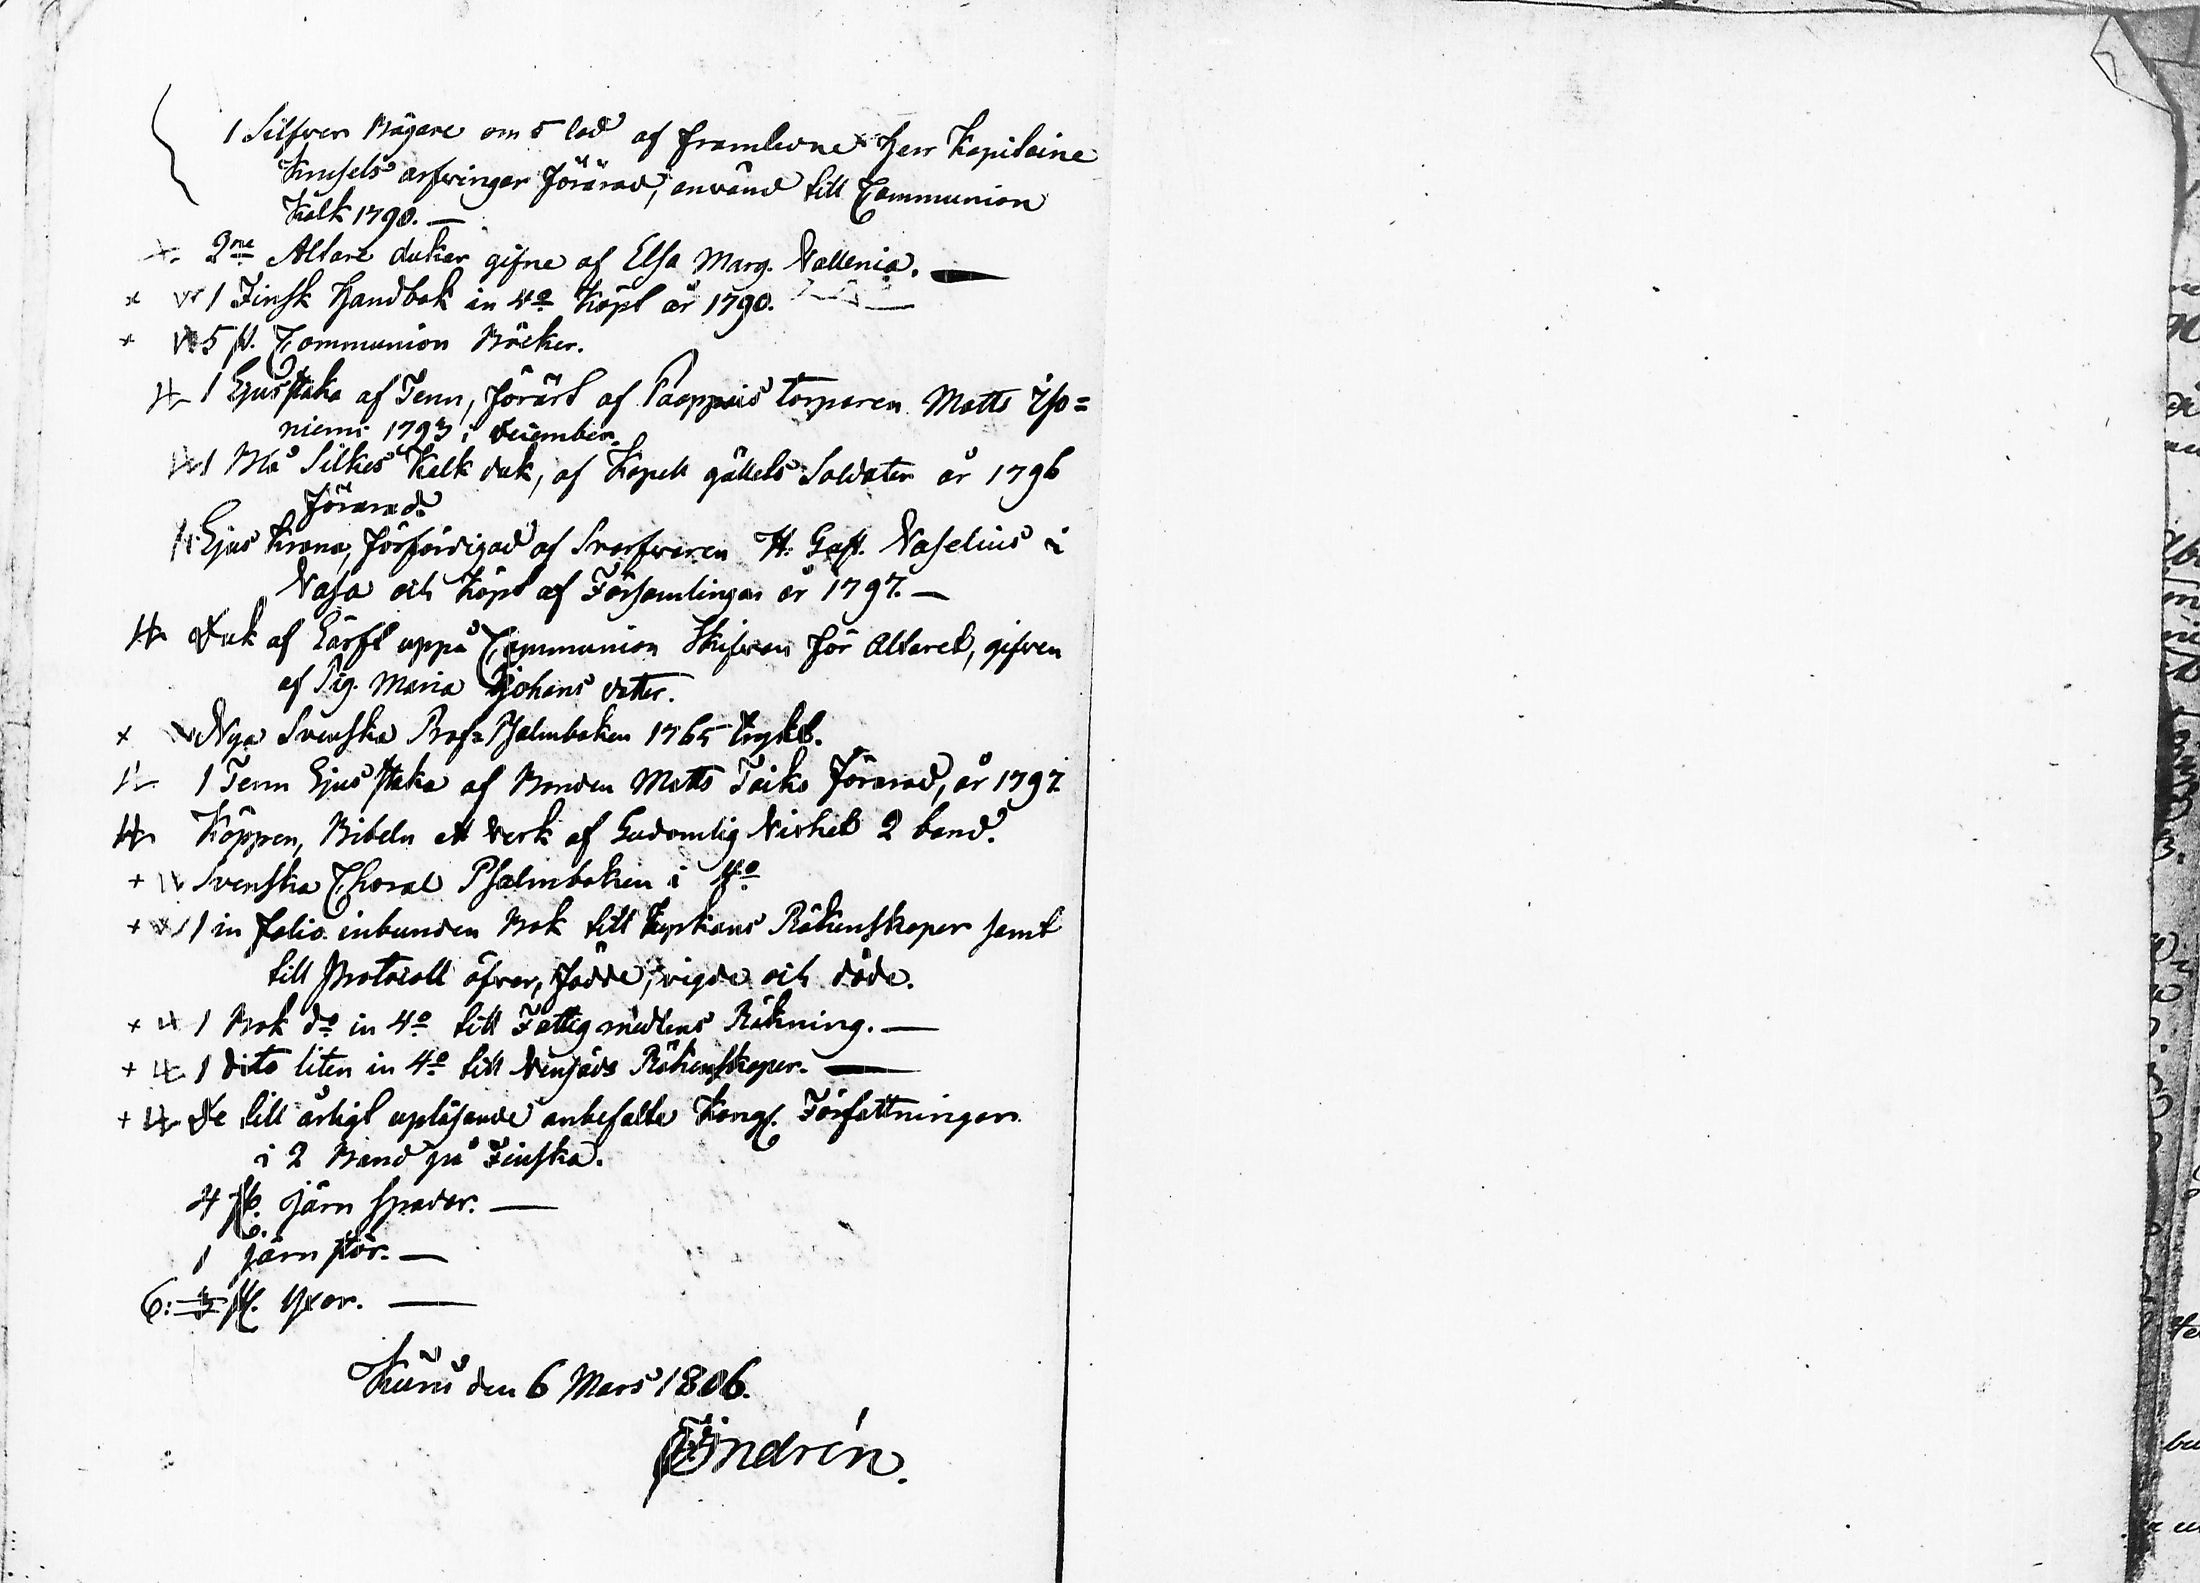 1 Silfver Bägare om 5 lod af framledne Herr Kapitaine
Knufels arfvingar förärad, använd till Communion
Kalk 1790. —
2ne Altare dukar gifne af Elsa Marg. Vallenia. —
1 Finsk Handbok in 4o Köpt år 1790. —
5 st. Communion Böcker.
1 Ljusstaka af Tenn, förärt af Paappais torparen Matts Iso=
niemi 1793 i December.
1 Blå Silkes Kalk duk, af Kapell gällets Soldater år 1796
förärad.
1 Ljus Krona, förfärdigad af Svarfvaren H. Gust. Vaselius i
Vasa och Köpt af Församlingen år 1797. —
Duk af Lärft uppå Communion Skifvan för Altaret, gifven
af Pig. Maria Johans dotter.
Nya Svenska Prof-Psalmboken 1765 tryckt.
1 Tenn Ljus staka af Bonden Matts Toiko förärad, år 1797.
Köppen, Bibeln ett Verk af Gudomlig Vishet 2 band.
Svenska Choral Psalmboken i 4o
1 in folio inbunden Bok till Kyrkans Räkenskaper samt
till Protocoll öfver, födde, vigde och döde.
1 Bok do in 4o till Fattig medlens Räkning. —
1 dito liten in 4o till Räkenskaper. —
De till årligt upläsande anbefalte Kongl. Författningar
i 2 Band på Finska.
4 st. järn spadar. —
1 järn stör. —
6: 3 st. yxor. —
Kuru den 6 Mars 1806.
Indrén.